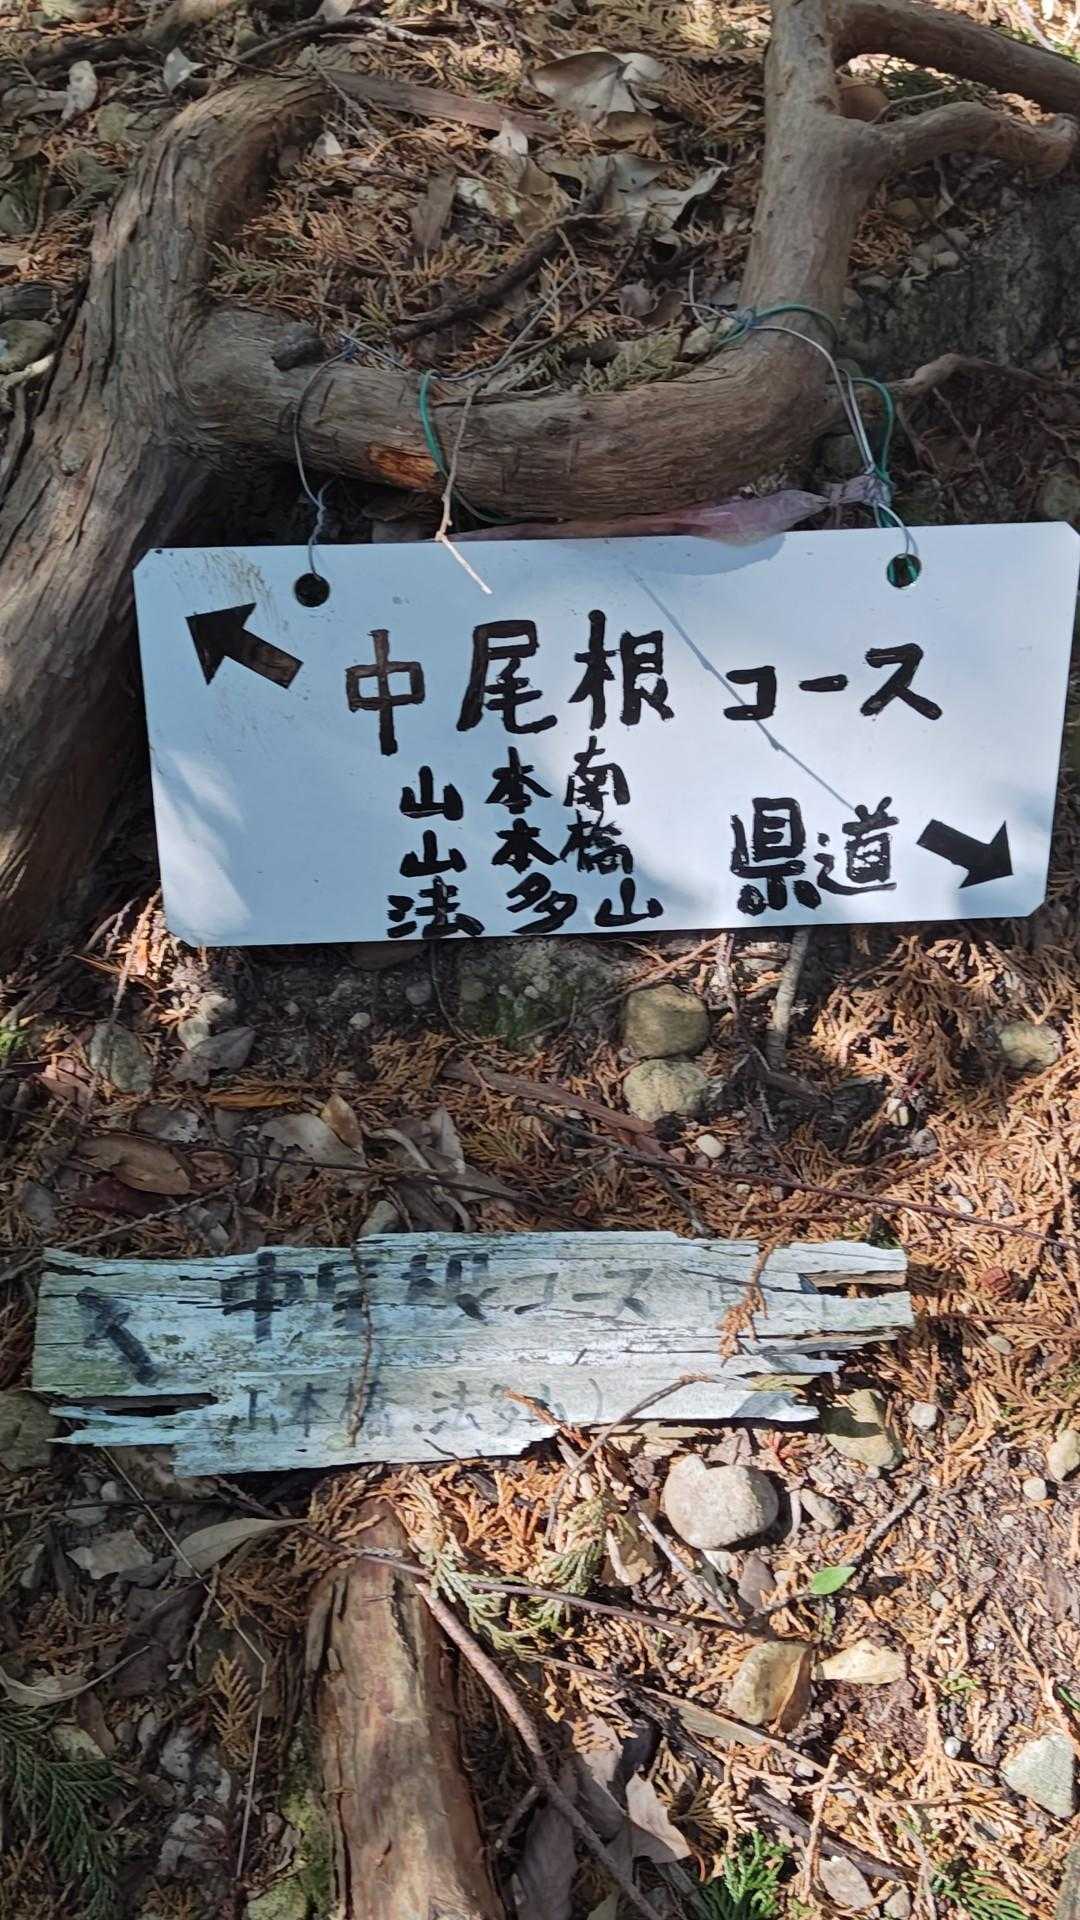 中尾根コース
山本南
山本橋
法多山
県道
中尾根コース
山本橋.法多山)